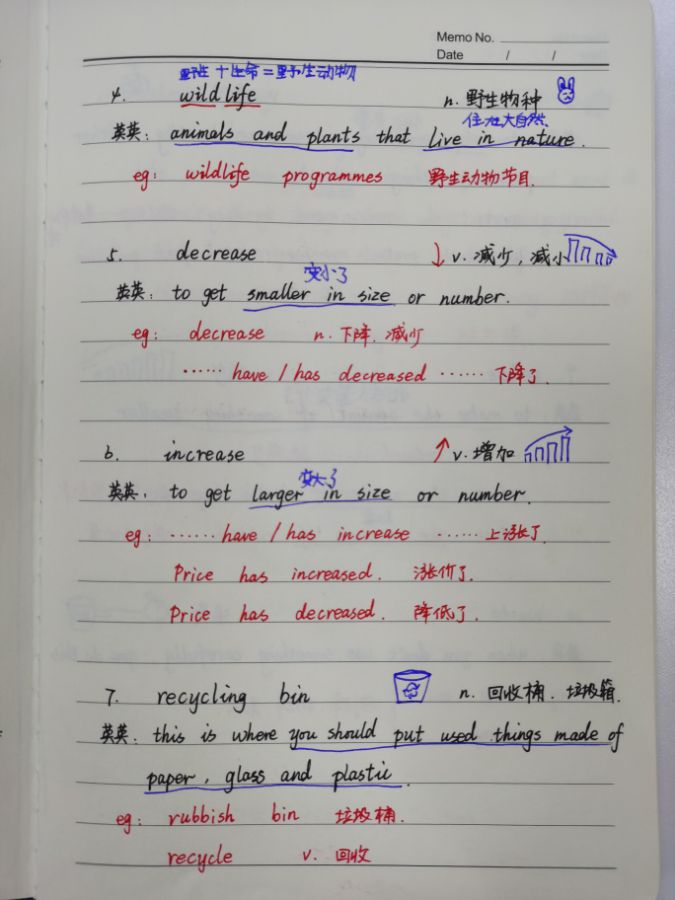 Memo No.
Date / /
野生 + 生命 = 野生动物
4. wildlife n. 野生物种
住在大自然
英英: animals and plants that live in nature.
eg: wildlife programmes 野生动物节目.
5. decrease ↓ v. 减少, 减小
变小了
英英: to get smaller in size or number.
eg: decrease n. 下降. 减少
…… have / has decreased …… 下降了.
6. increase ↑ v. 增加
变大了
英英. to get larger in size or number.
eg: …… have / has increase …… 上涨了.
Price has increased. 涨价了.
Price has decreased. 降低了.
7. recycling bin n. 回收桶. 垃圾箱.
英英: this is where you should put used things made of
paper, glass and plastic.
eg: rubbish bin 垃圾桶.
recycle v. 回收